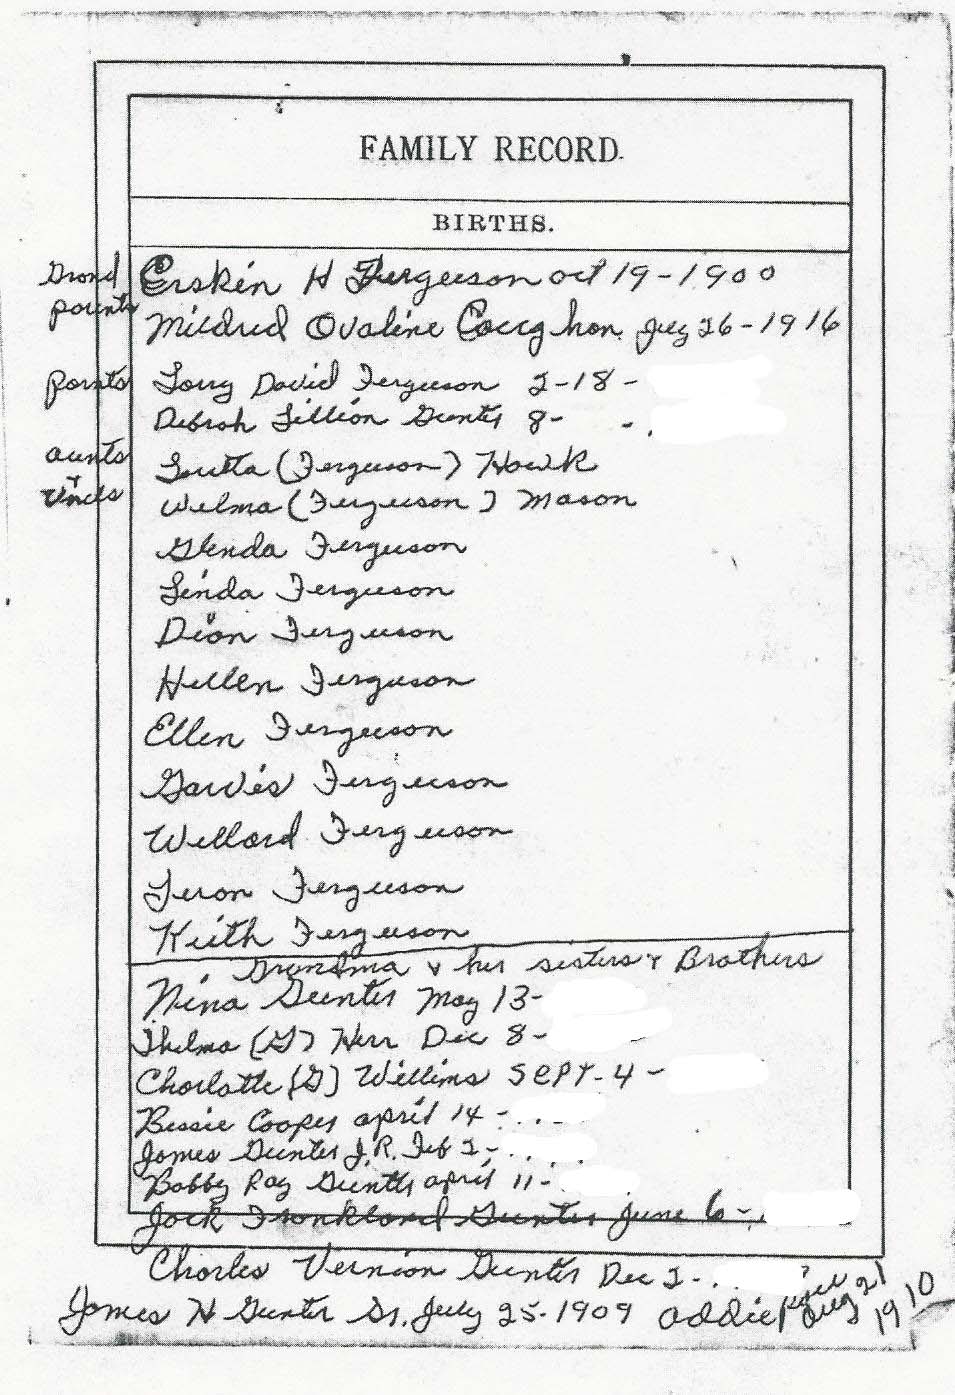 FAMILY RECORD.
BIRTHS.
Grand Parints
Erskin H Ferguson oct 19-1900
Mildred Ovaline Caughon July 26-1916
Parnts
Larry David Ferguson 2-18-
Debrah Lillian Gunter 8-
aunts + Uncls
Luetta (Ferguson) Hawk
Wilma (Ferguson) Mason
Glenda Ferguson
Linda Ferguson
Dean Ferguson
Hellen Ferguson
Ellen Ferguson
Garvis Ferguson
Willard Ferguson
Leron Ferguson
Keith Ferguson
Grandma & her sisters & Brothers
Nina Gunter May 13-
Thelma (G) Herr Dec 8-
Charlotte (G) Willims SEPT-4-
Bessie Cooper april 14-
James Gunter J.R. Feb 2-
Bobby Ray Gunter april 11-
Jack Frankland Gunter June 6-
Charles Vernion Gunter Dec 2-
James H Gunter Sr. July 25-1909 addie Aug 21 1910